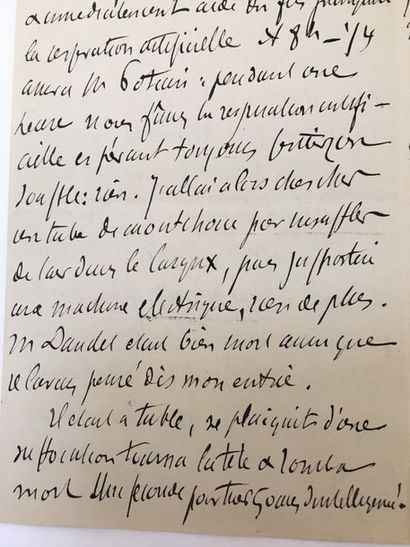 & immédiatement aidé du fils pratiquai
la respiration artificielle A 8h - 1/4
arriva M Potain : pendant une
heure nous fîmes la respiration artifi-
cielle espérant toujours
souffle : rien. J'allai alors chercher
un tube de pour insuffler
de l'air dans le larynx, puis j'apportai
une machine électrique, rien de plus.
M Daudet était bien mort ainsi que
je l'avais pensé dès mon entrée.
Il était à table, se plaignit d'une
suffocation tourna la tête & tomba
mort